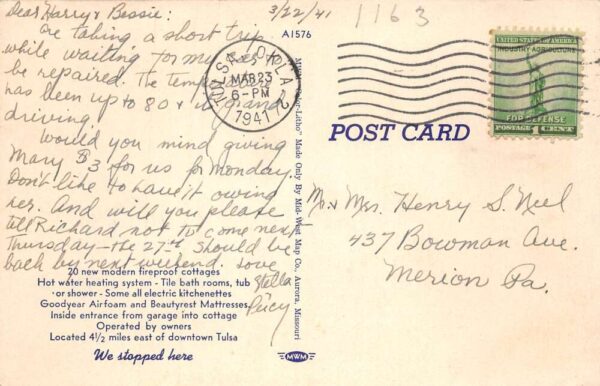 Dear Harry & Bessie:
3/22/41
1163
are taking a short trip
while waiting for my
be repaired. The
has been up to 80 & is grand
driving.
Would you mind giving
Mary $3 for us for Monday.
Don't like to have it owing
her. And will you please
tell Richard not to come next
Thursday - the 27th. Should be
back by next weekend. Love
Stella
Percy
20 new modern fireproof cottages
Hot water heating system - Tile bath rooms, tub
or shower - Some all electric kitchenettes
Goodyear Airfoam and Beautyrest Mattresses
Inside entrance from garage into cottage
Operated by owners
Located 4½ miles east of downtown Tulsa
We stopped here
A1576
MWM "Color-Litho" Made Only By Mid-West Map Co., Aurora, Missouri
MWM
TULSA, OKLA.
MAR 23
6-PM
1941
2
POST CARD
UNITED STATES OF AMERICA
INDUSTRY AGRICULTURE
FOR DEFENSE
POSTAGE 1 CENT
Mr & Mrs. Henry S. Neel
437 Bowman Ave.
Merion Pa.